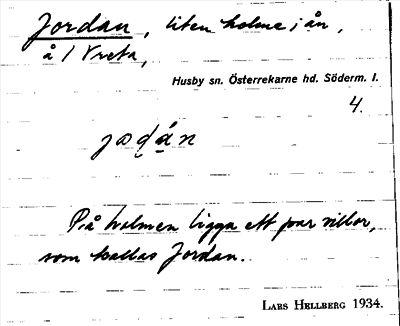 Jordan, liten holme i ån,
å 1 Vreta,
Husby sn. Österrekarne hd. Söderm. l.
4.
På holmen ligga ett par villor,
som kallas Jordan.
LARS HELLBERG 1934.